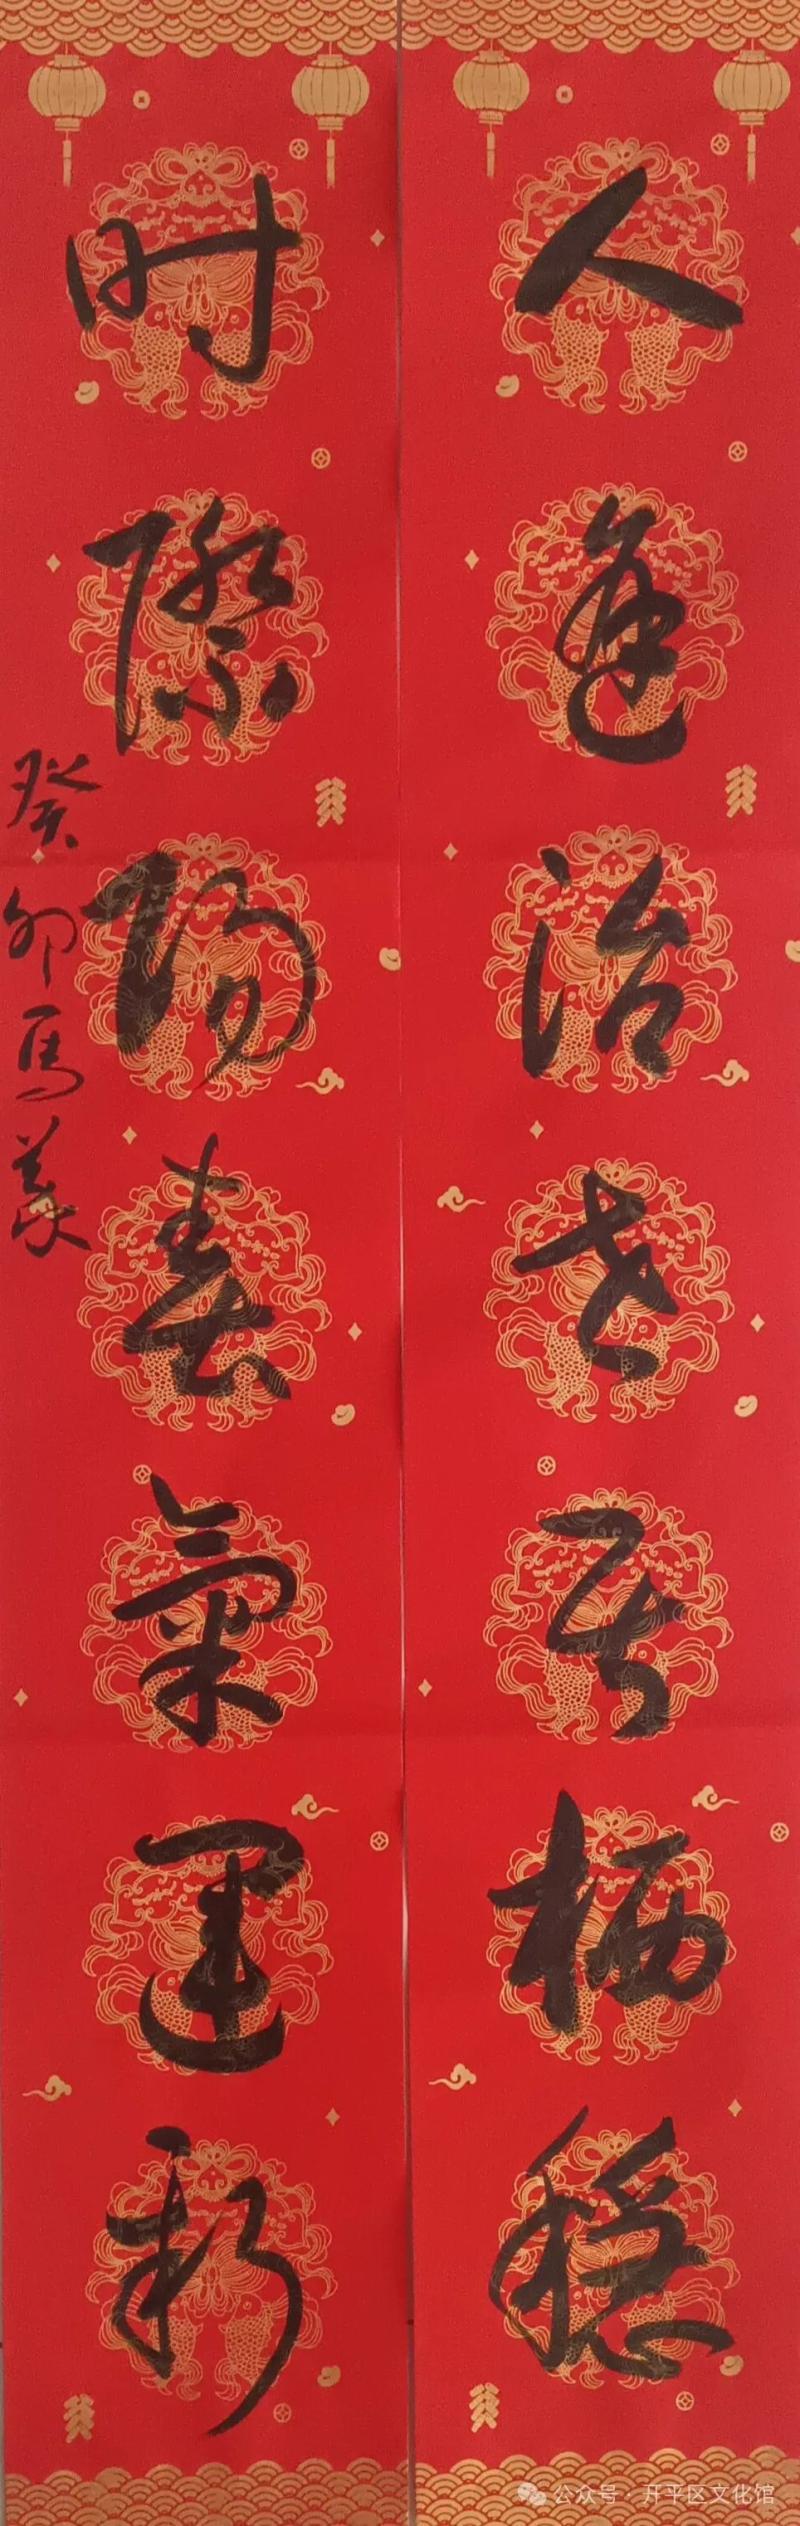 人逢治世居栖稳
时际阳春气运新
癸卯马義
公众号·开平区文化馆